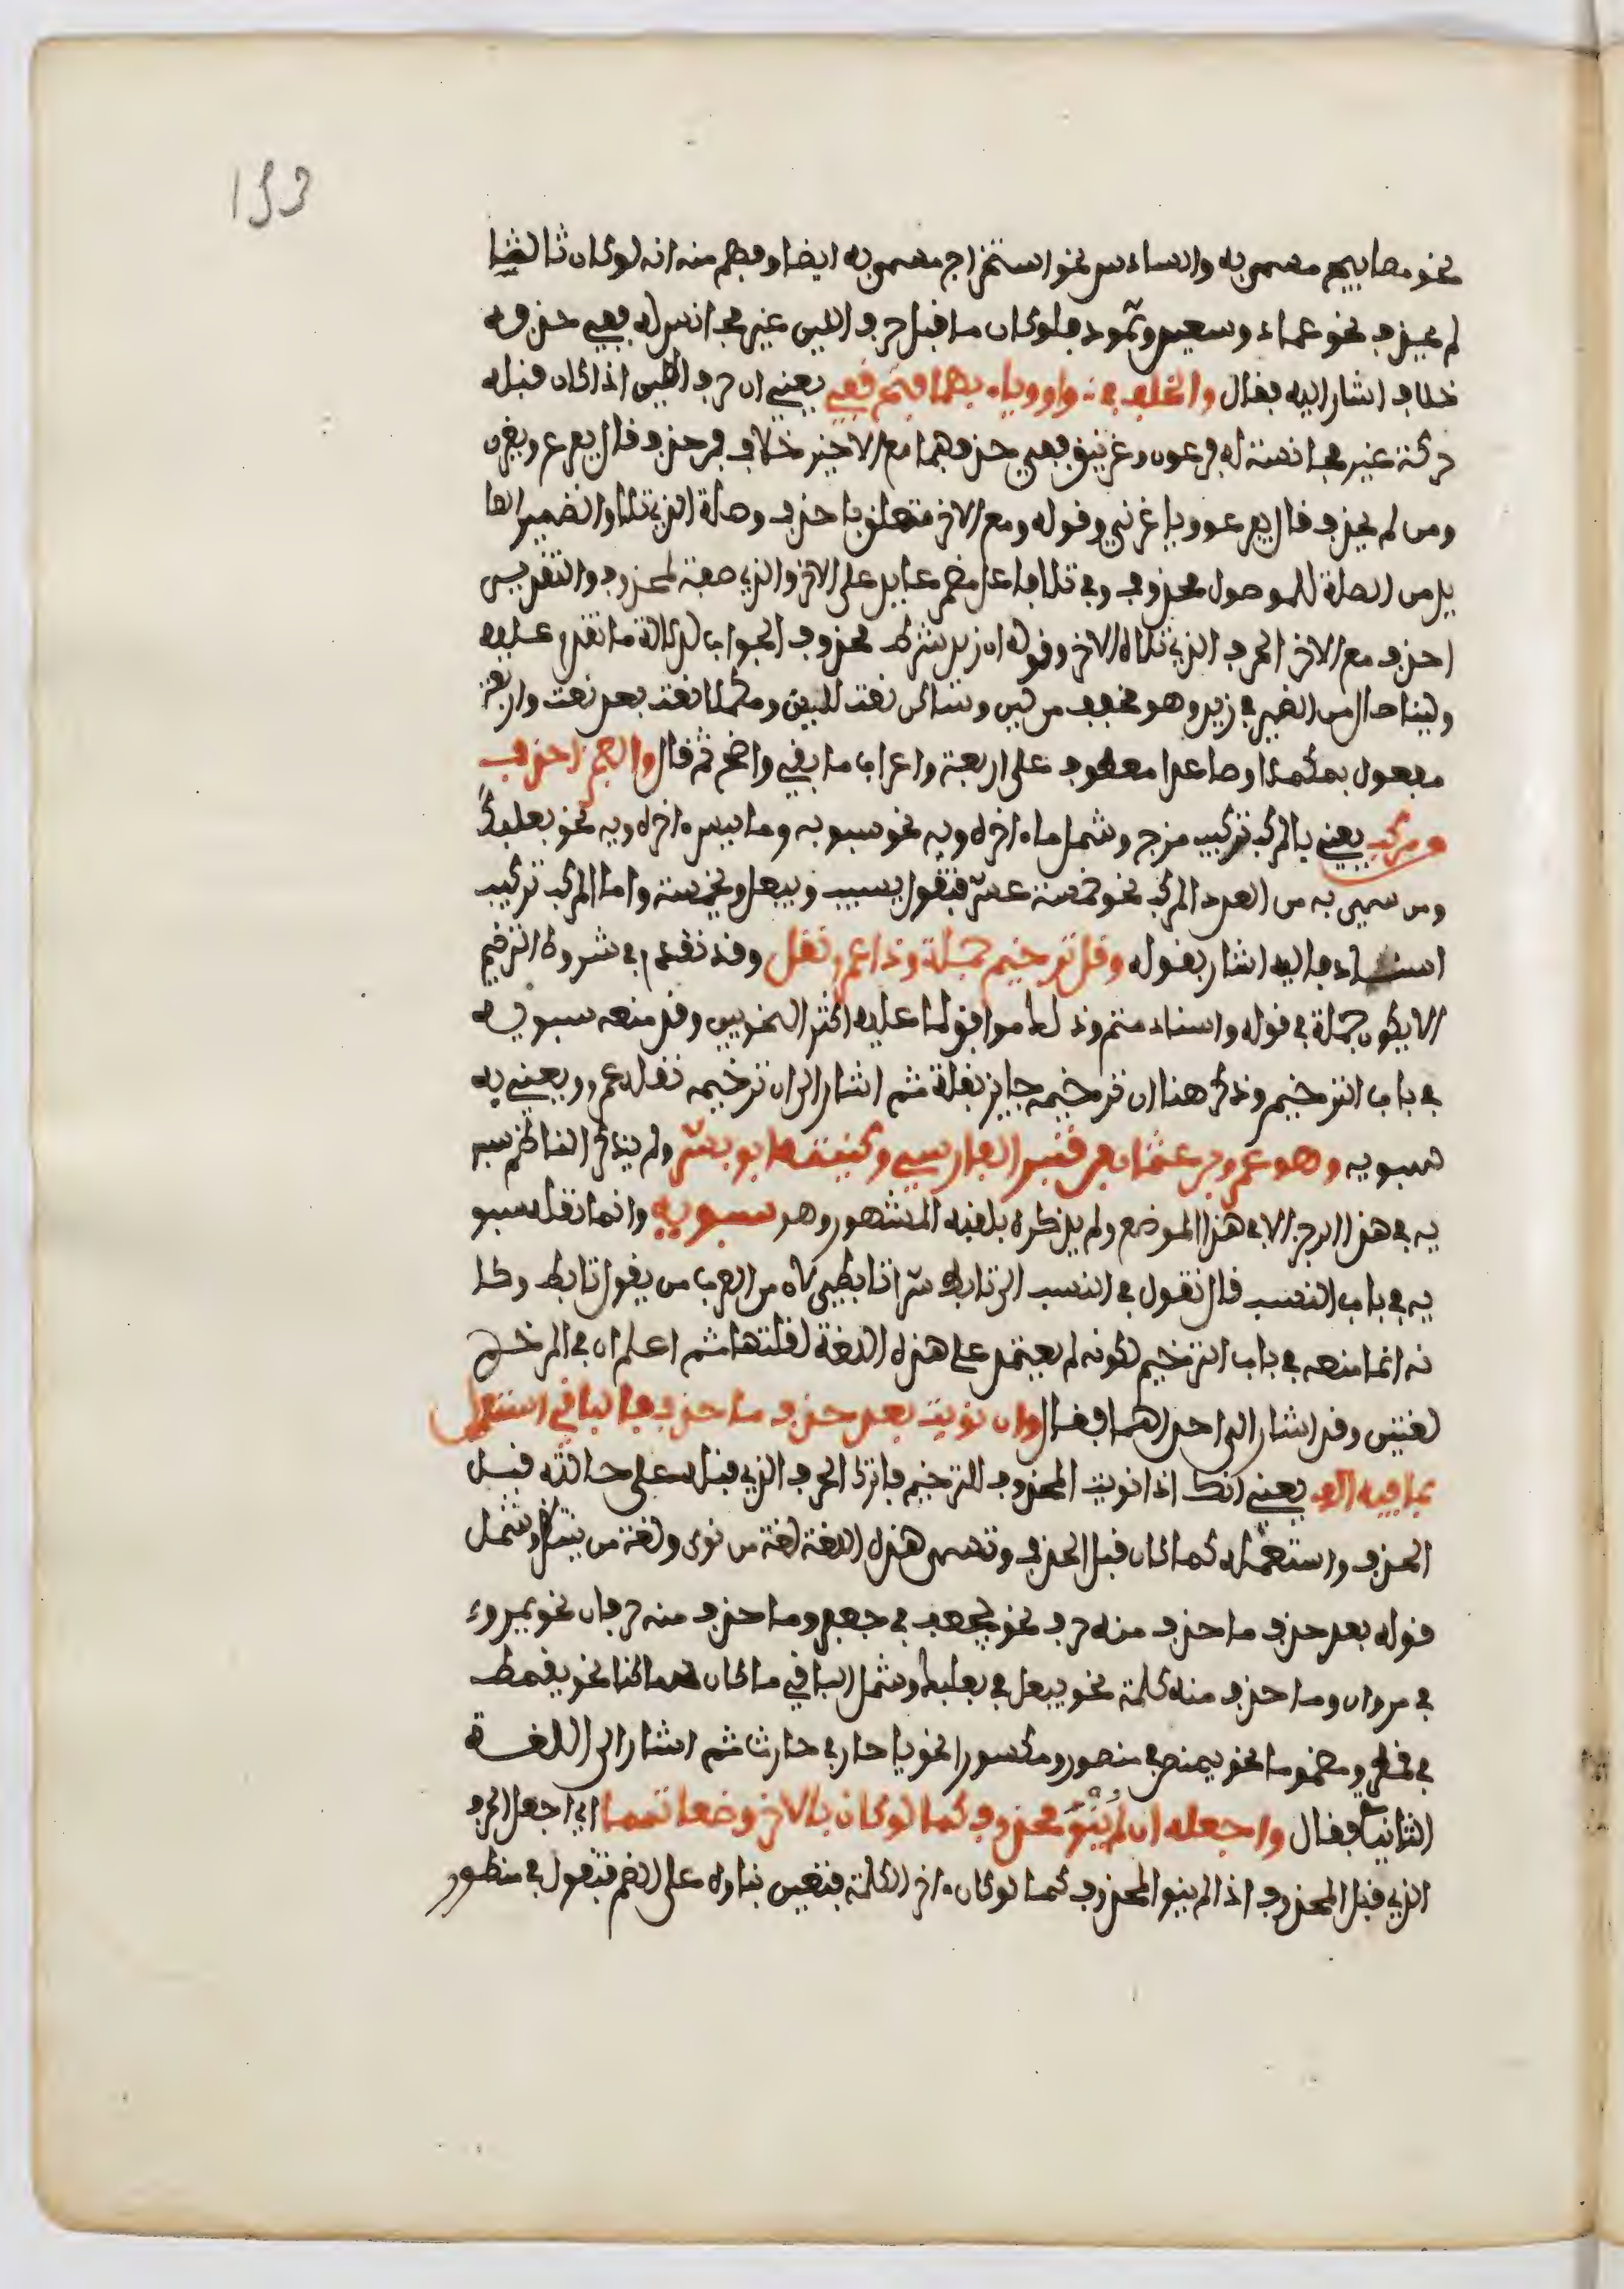 153
نحو مصابيح مسمى به والسادس نحو استخراج مسمى به ايضا وفهم منه انه لو كان ثالثا
لم يحذف نحو عماد وسعيد وثمود فلو كان ما قبل حرف اللين غير مجانس له ففي حذفه
خلاف اشار اليه بقال والخلف في واو وياء بهما فتح قفي يعني ان حرف اللين اذا كان قبله
حركة غير مجانسة له كفرعون وغرنيق ففي حذفهما مع الاخير خلاف فمن حذف قال يا فرع ويا غرن
ومن لم يحذف قال يا فرعو ويا غرني وقوله ومع الاخر متعلق باحذف وصلة الذي تلا والضمير العا
يد من الصلة للموصول محذوف وفي تلا فاعل مضمر عايد على الاخر والذي صفة لمحذوف والتقدير
احذف مع الاخر الحرف الذي تلاه الاخر وقوله ان زيد شرط محذوف الجواب لدلالة ما تقدم عليه
ولينا حال من الضمير في زيد وهو مخفف من لين وساكن نعت للين ومكملا نعت بعد نعت واربعة
مفعول بمكملا وصاعدا معطوف على اربعة واعراب ما بقي واضح ثم قال والعجز احذف
من مركب يعني بالمركب تركيب مزج وشمل ما اخره ويه نحو سيبويه وما ليس اخره ويه نحو بعلبك
ومن سمي به من العدد المركب نحو خمسة عشر فتقول يا سيب ويا بعل ويا خمسة واما المركب تركيب
اسناد فاليه اشار بقوله وقل ترخيم جملة وذا عمرو نقل وقد تقدم في شروط الترخيم
الا يكون جملة في قوله واسناد متم وذلك موافق لما عليه اكثر النحويين وقد منعه سيبويه
في باب الترخيم وذكر هنا ان ترخيمه جايز بقلة ثم اشار الى ان ترخيمه نقله عمرو ويعني به
سيبويه وهو عمرو بن عثمان بن قنبر الفارسي وكنيته ابو بشر ولم يذكر الناظم سيبو
يه في هذا الرجز الا في هذا الموضع ولم يذكره بلقبه المشهور وهو سيبويه وانما نقله سيبو
يه في باب النسب قال تقول في النسب الى تابط شرا تابطي لان من العرب من يقول تابط وكا
نه انما منعه في باب الترخيم لكونه لم يعتمد على هذه اللغة لقلتها ثم اعلم ان في المرخم
لغتين وقد اشار الى احداهما فقال وان نويت بعد حذف ما حذف فالباقي استعمل
بما فيه الف يعني انك اذا نويت المحذوف للترخيم فاترك الحرف الذي قبله على حالته قبل
الحذف واستعمله كما كان قبل الحذف وتسمى هذه اللغة لغة من نوى ولغة من ينتظر وشمل
قوله بعد حذف ما حذف منه حرف نحو يا جعف في جعفر وما حذف منه حرفان نحو يا مرو
في مروان وما حذف منه كلمة نحو يا بعل في بعلبك وشمل الباقي ما كان ساكنا نحو يا قمط
في قمطر ومضموما نحو يا منص في منصور ومكسورا نحو يا حار في حارث ثم اشار الى اللغة
الثانية فقال واجعله ان لم تنو محذوف كما لو كان بالاخر وضعا تمما اي اجعل الحرف
الذي قبل المحذوف اذا لم ينو المحذوف كما لو كان اخر الكلمة فتعين بناوه على الضم فتقول في منصور